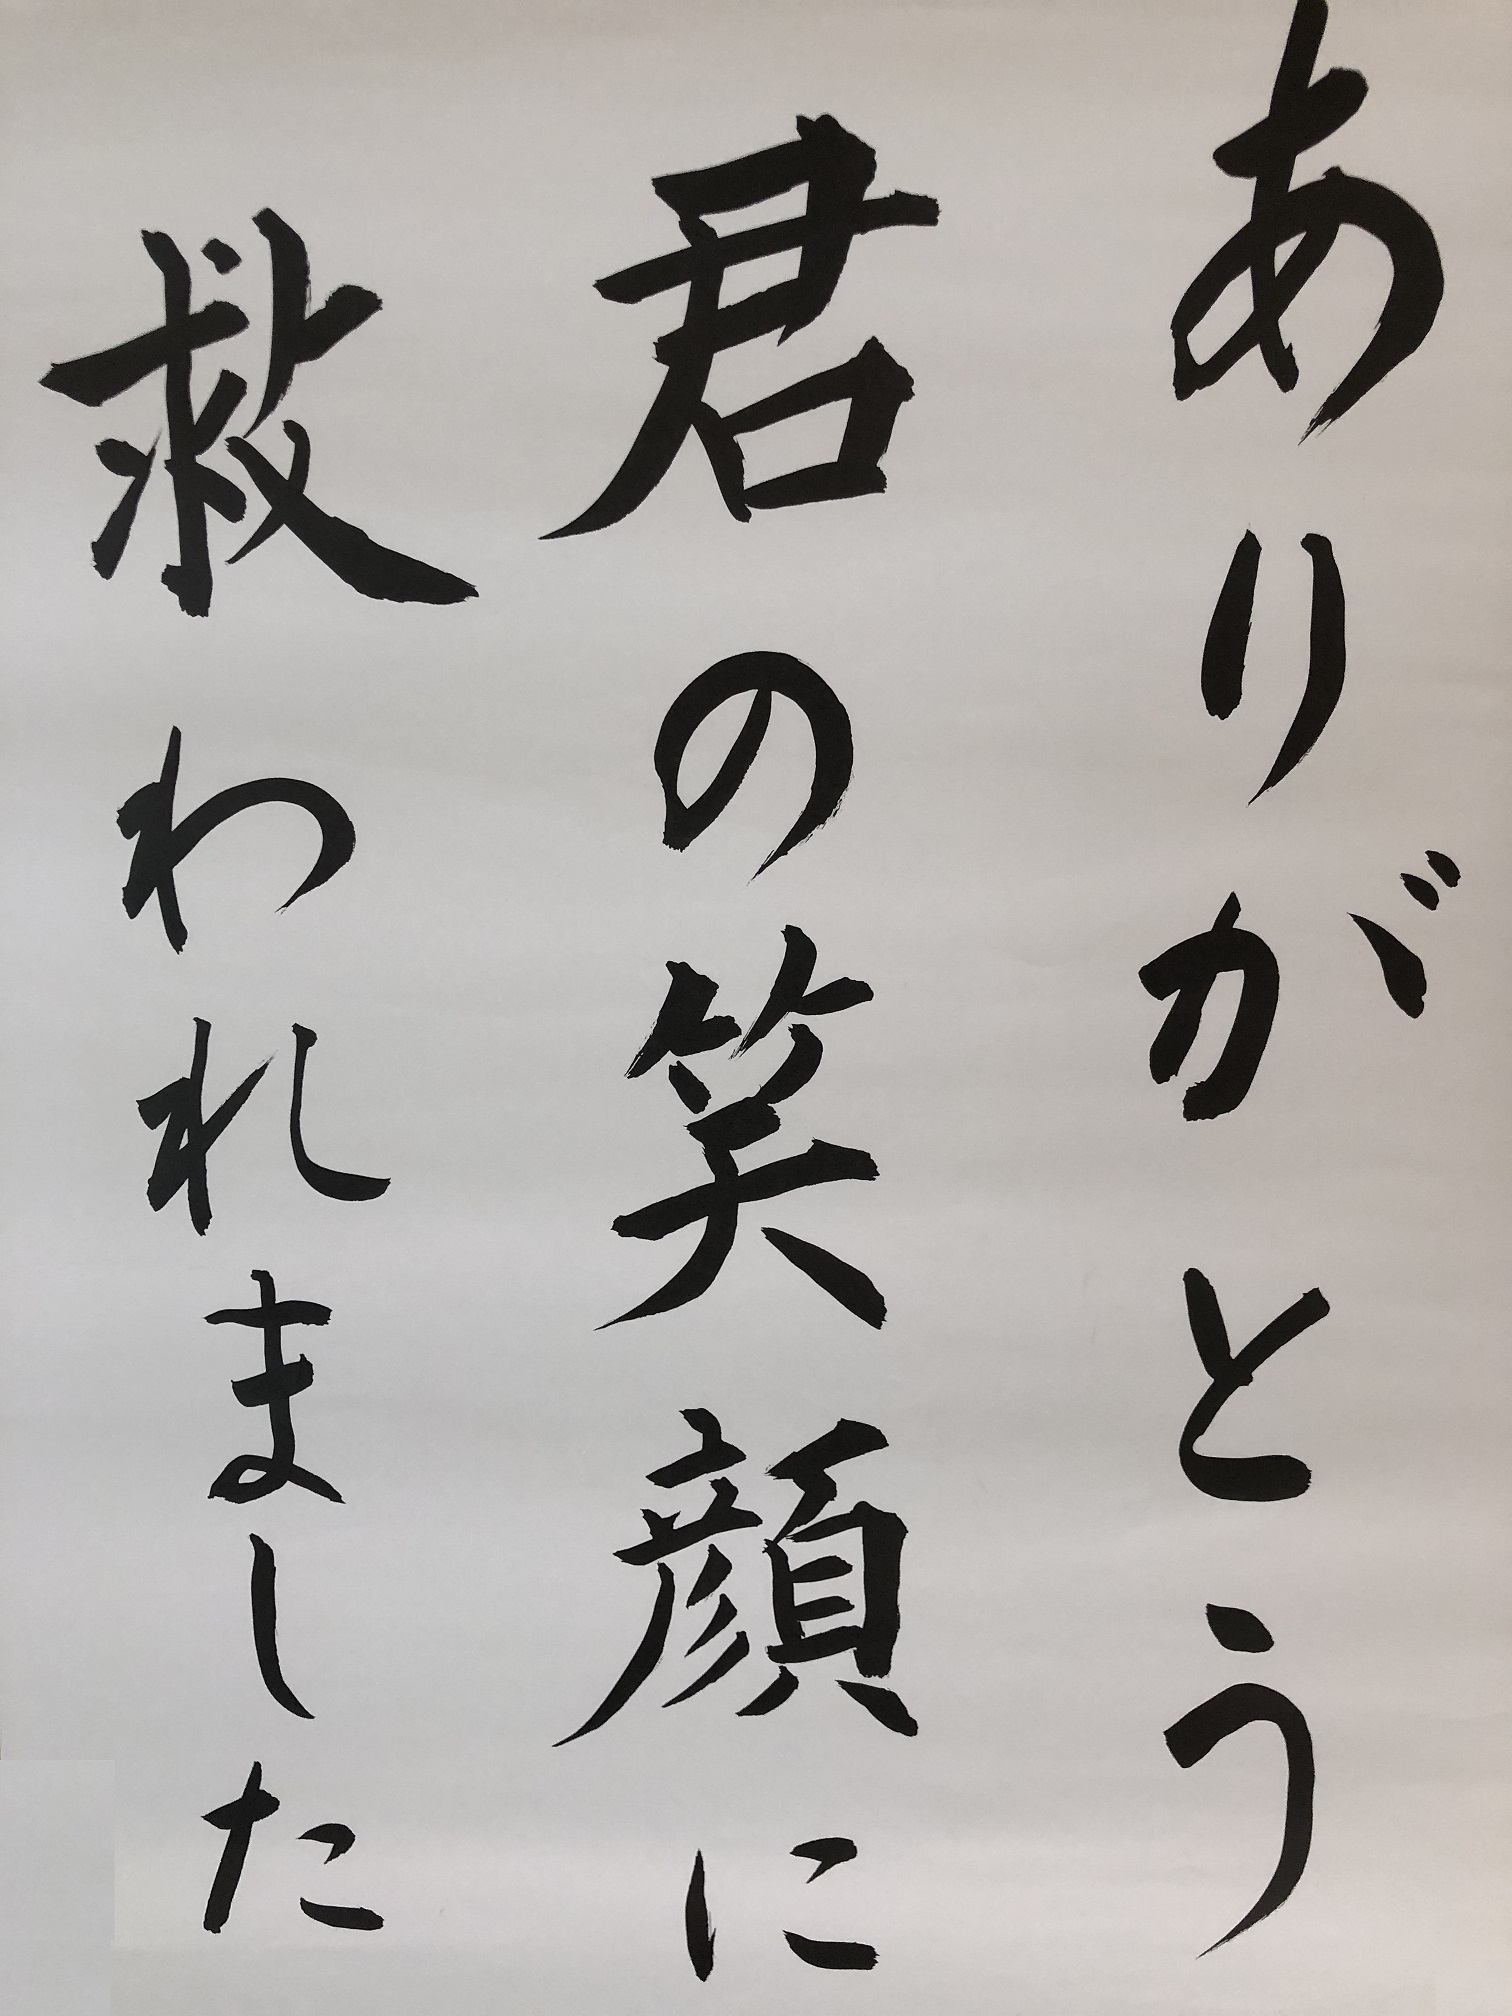 ありがとう
君の笑顔に
救われました